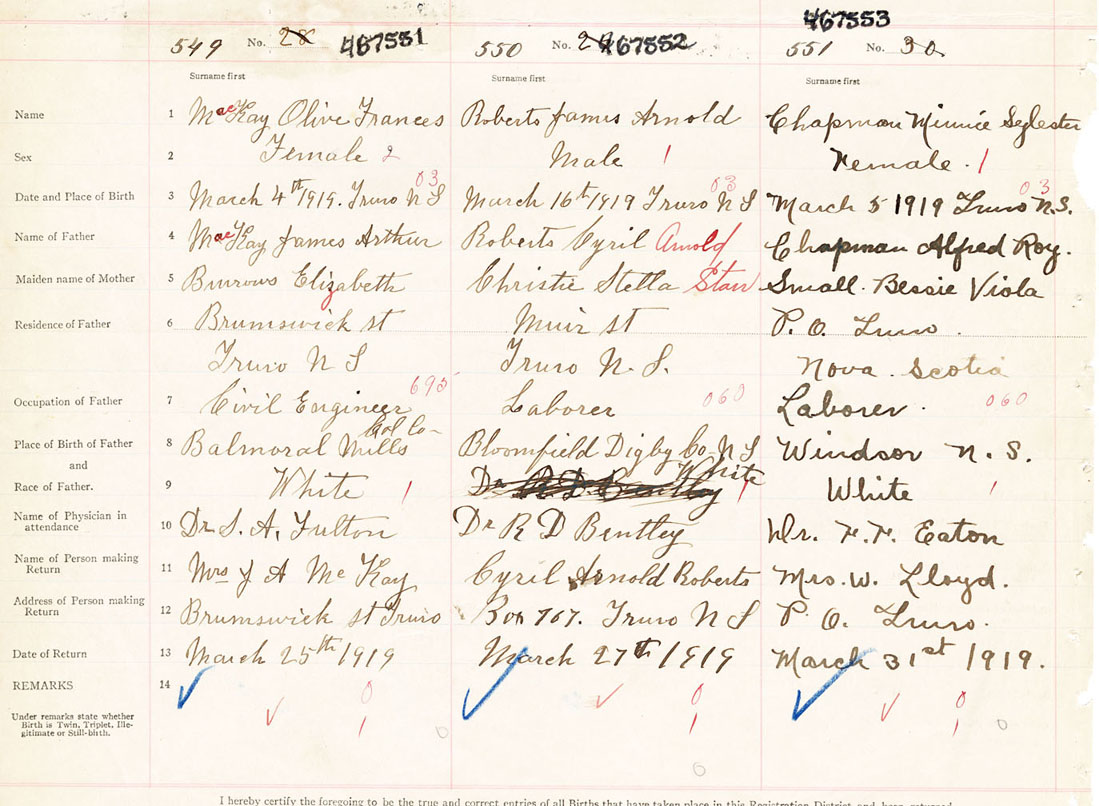 467553
549 No. 28 467551 550 No. 29 467552 551 No. 30
Surname first Surname first Surname first
Name 1 MacKay Olive Frances Roberts James Arnold Chapman Minnie Sylester
Sex 2 Female 2 Male 1 Female. 1
03 03 03
Date and Place of Birth 3 March 4th 1919. Truro N S March 16th 1919 Truro N S March 5 1919 Truro N.S.
Name of Father 4 MacKay James Arthur Roberts Cyril Arnold Chapman Alfred Roy.
Maiden name of Mother 5 Burrows Elizabeth Christie Stella Starr Small. Bessie Viola
Residence of Father 6 Brumswick st Muir st P. O. Truro.
Truro N S Truro N. S. Nova. Scotia
693 060 060
Occupation of Father 7 Civil Engineer Laborer Laborer.
Col Co-
Place of Birth of Father 8 Balmoral Mills Bloomfield Digby Co- N S Windsor N. S.
and
White
Race of Father. 9 White 1 Dr R D. Bentley 1 White 1
Name of Physician in
attendance 10 Dr S. A. Fulton Dr R D Bentley Dr. F. F. Eaton
Name of Person making
Return 11 Mrs J A Mc Kay Cyril Arnold Roberts Mrs. W. Lloyd.
Address of Person making
Return 12 Brumswick st Truro Box 767. Truro N S P. O. Truro.
Date of Return 13 March 25th 1919 March 27th 1919 March 31st 1919.
REMARKS 14 0 0 0
Under remarks state whether
Birth is Twin, Triplet, Ille-
gitimate or Still-birth. 1 0 1 1 0
0
I hereby certify the foregoing to be the true and correct entries of all Births that have taken place in this Registration District and been returned